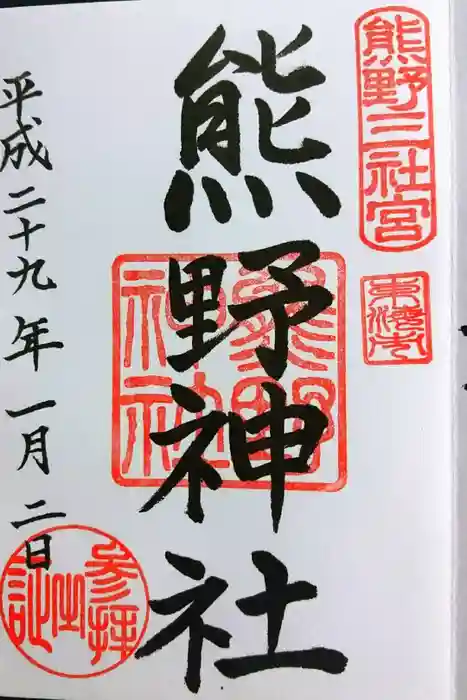 熊野三社宮
熊野神社
熊野
神社
平成二十九年一月二日
参拝
之
証